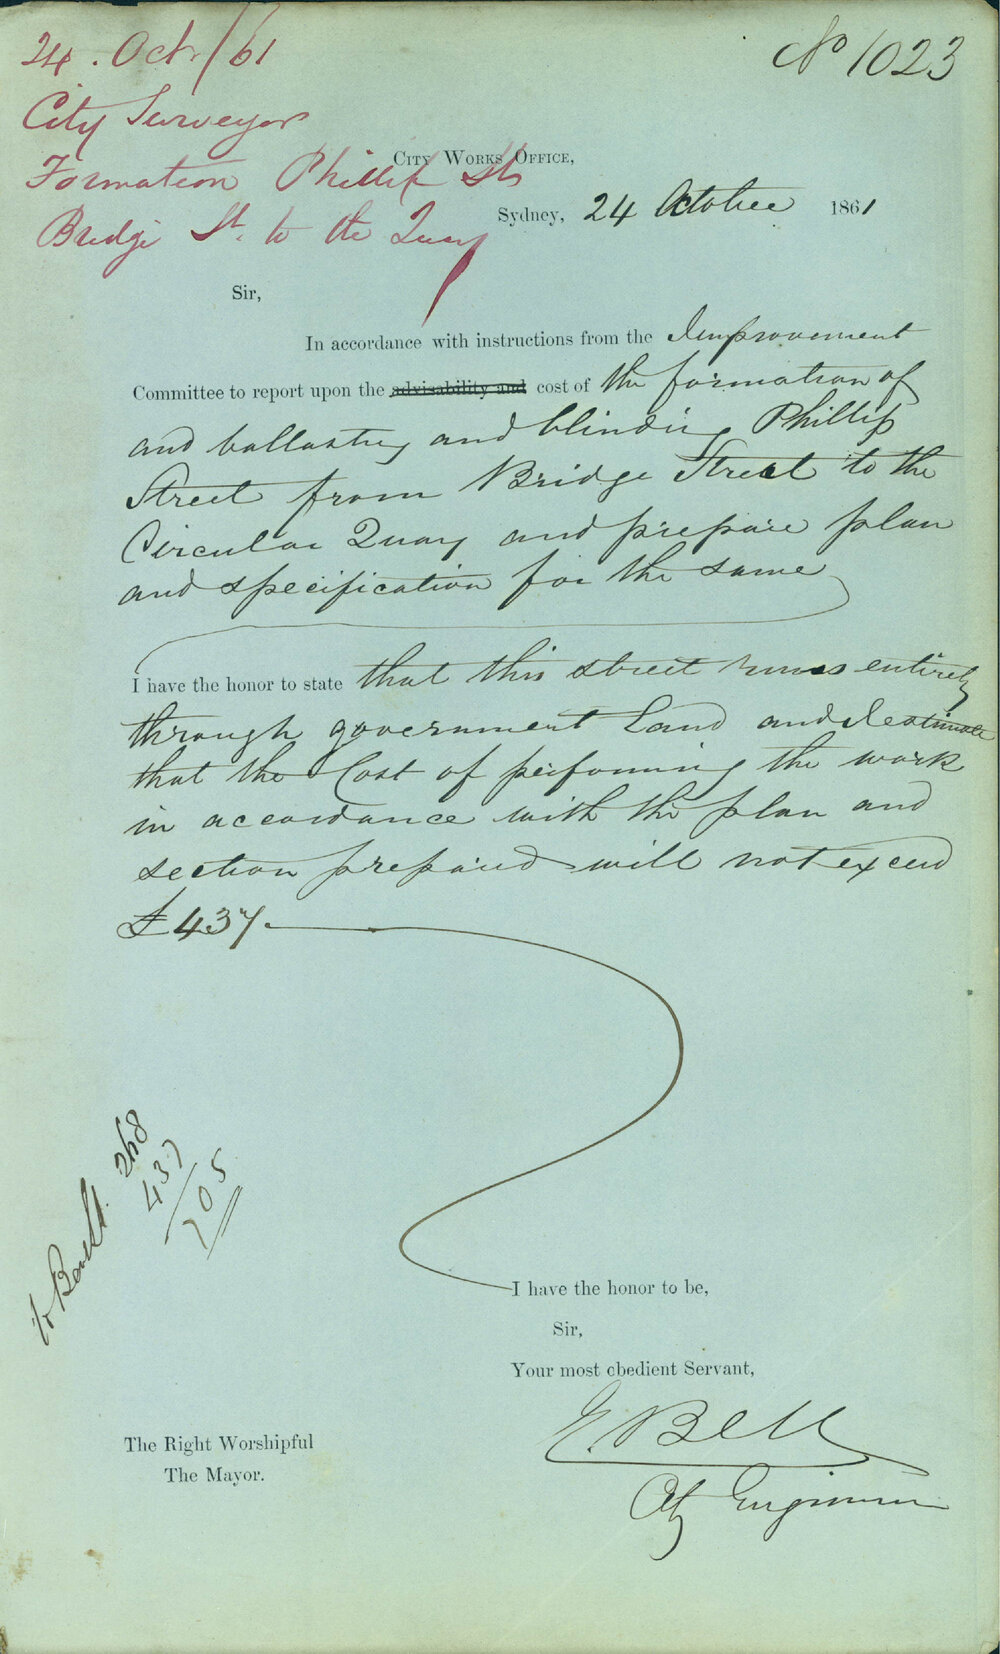 24. Oct/61
No 1023
City Surveyor
Formation Phillip St
Bridge St. to the Quay
City Works Office,
Sydney, 24 October 1861
Sir,
In accordance with instructions from the Improvement
Committee to report upon the advisability and cost of the formation of
and ballasting and blinding Phillip
Street from Bridge Street to the
Circular Quay and prepare plan
and specification for the same
I have the honor to state that this street runs entirely
through government Land and I estimate
that the Cost of performing the work
in accordance with the plan and
section prepared will not exceed
£437.
268
437
705
I have the honor to be,
Sir,
Your most obedient Servant,
E. Bell
City Engineer
The Right Worshipful
The Mayor.